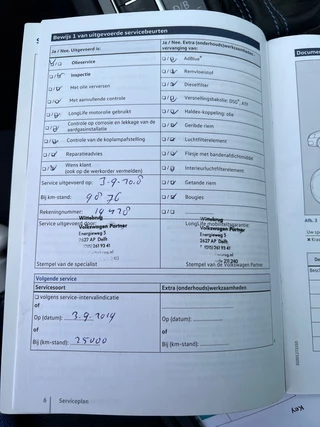 Bewijs 1 van uitgevoerde servicebeurten
Ja / Nee. Uitgevoerd is:
Olieservice
Inspectie
Met olie verversen
Met aanvullende controle
LongLife motorolie gebruikt
Controle op corrosie en lekkage van de
aardgasinstallatie
Controle van de koplampafstelling
Reparatieadvies
Wens klant
(ook op de werkorder vermelden)
Service uitgevoerd op: 3-9-20.8
Bij km-stand: 9876
Rekeningnummer:
Service uitgevoerd door:
Wittebrug
Volkswagen Partner
Energieweg 3
2627 AP Delft
Stempel van de specialist
Ja / Nee. Extra (onderhouds)werkzaamheden,
vervanging van:
AdBlue®
Remvloeistof
Dieselfilter
Versnellingsbakolie: DSG®,
Haldex-koppeling: olie
Geribde riem
Luchtfilterelement
Flesje met bandenafdichtmiddel
Interieurluchtfilterelement
Getande riem
Bougies
LongLife mobiliteitsgarantie:
Wittebrug
Volkswagen Partner
Energieweg 3
2627 AP Delft
Stempel van de Volkswagen Partner
Volgende service
Servicesoort
volgens service-intervalindicatie
of
Op (datum): 3.9.2019
of
Bij (km-stand): 25000
Extra (onderhouds)werkzaamheden
Op (datum):
of
Bij (km-stand):
8 Serviceplan
Key